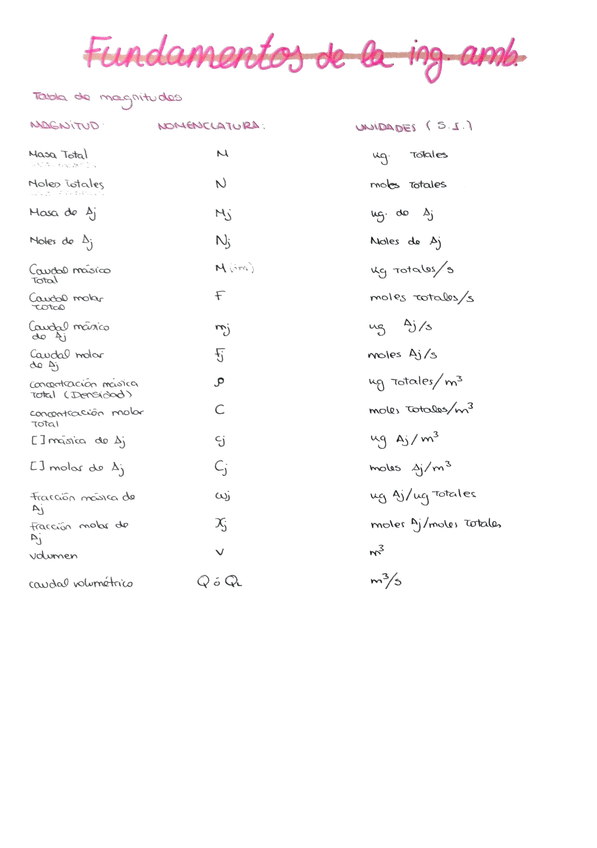 Fundamentos de la ing. amb.
Tabla de magnitudes
MAGNITUD NOMENCLATURA: UNIDADES (S.I.)
Masa Total M ug. Totales
Moles Totales N moles Totales
Masa de Aj Mj ug. de Aj
Moles de Aj Nj Moles de Aj
Caudal másico M ug Totales/s
Total
Caudal molar F moles Totales/s
Total
Caudal másico mj ug Aj/s
de Aj
Caudal molar Fj moles Aj/s
de Aj
concentración másica ρ ug Totales/m³
Total (Densidad)
concentración molar C moles Totales/m³
Total
[] másica de Aj cj ug Aj/m³
[] molar de Aj Cj moles Aj/m³
fracción másica de ωj ug Aj/ug Totales
Aj
fracción molar de Xj moles Aj/moles Totales
Aj
volumen V m³
caudal volumétrico Q ó QL m³/s